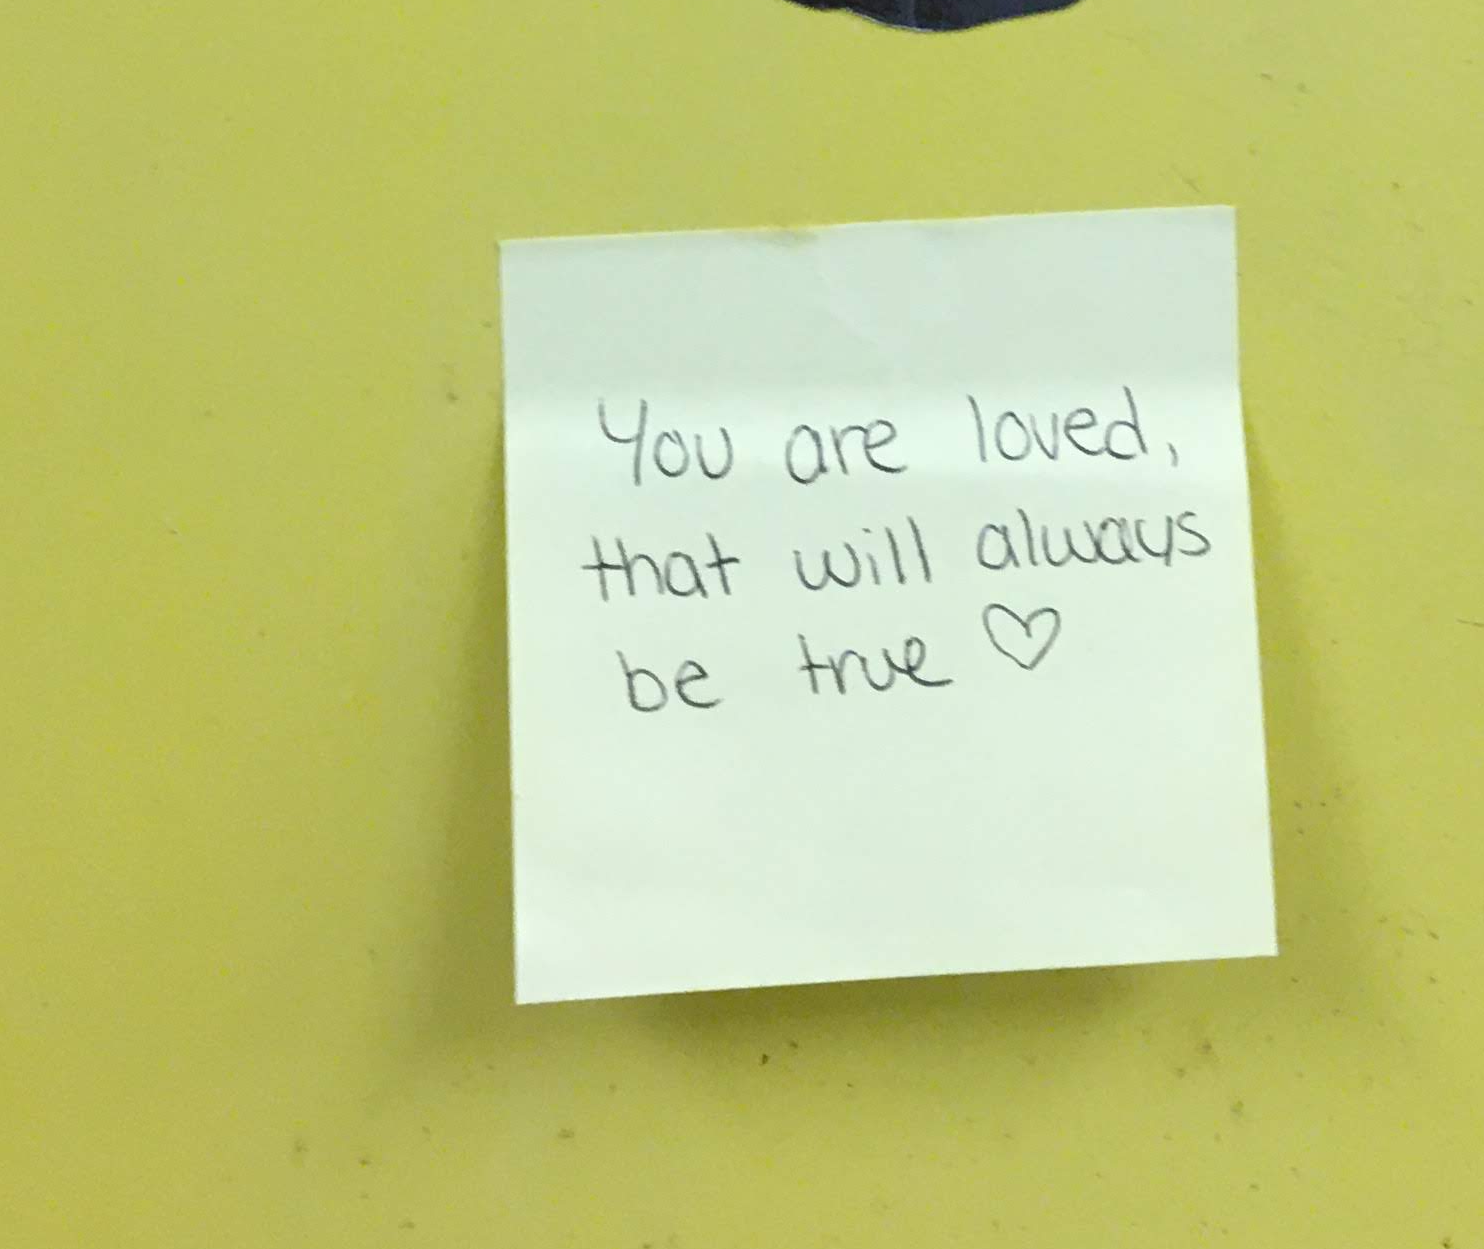 You are loved,
that will always
be true ♡